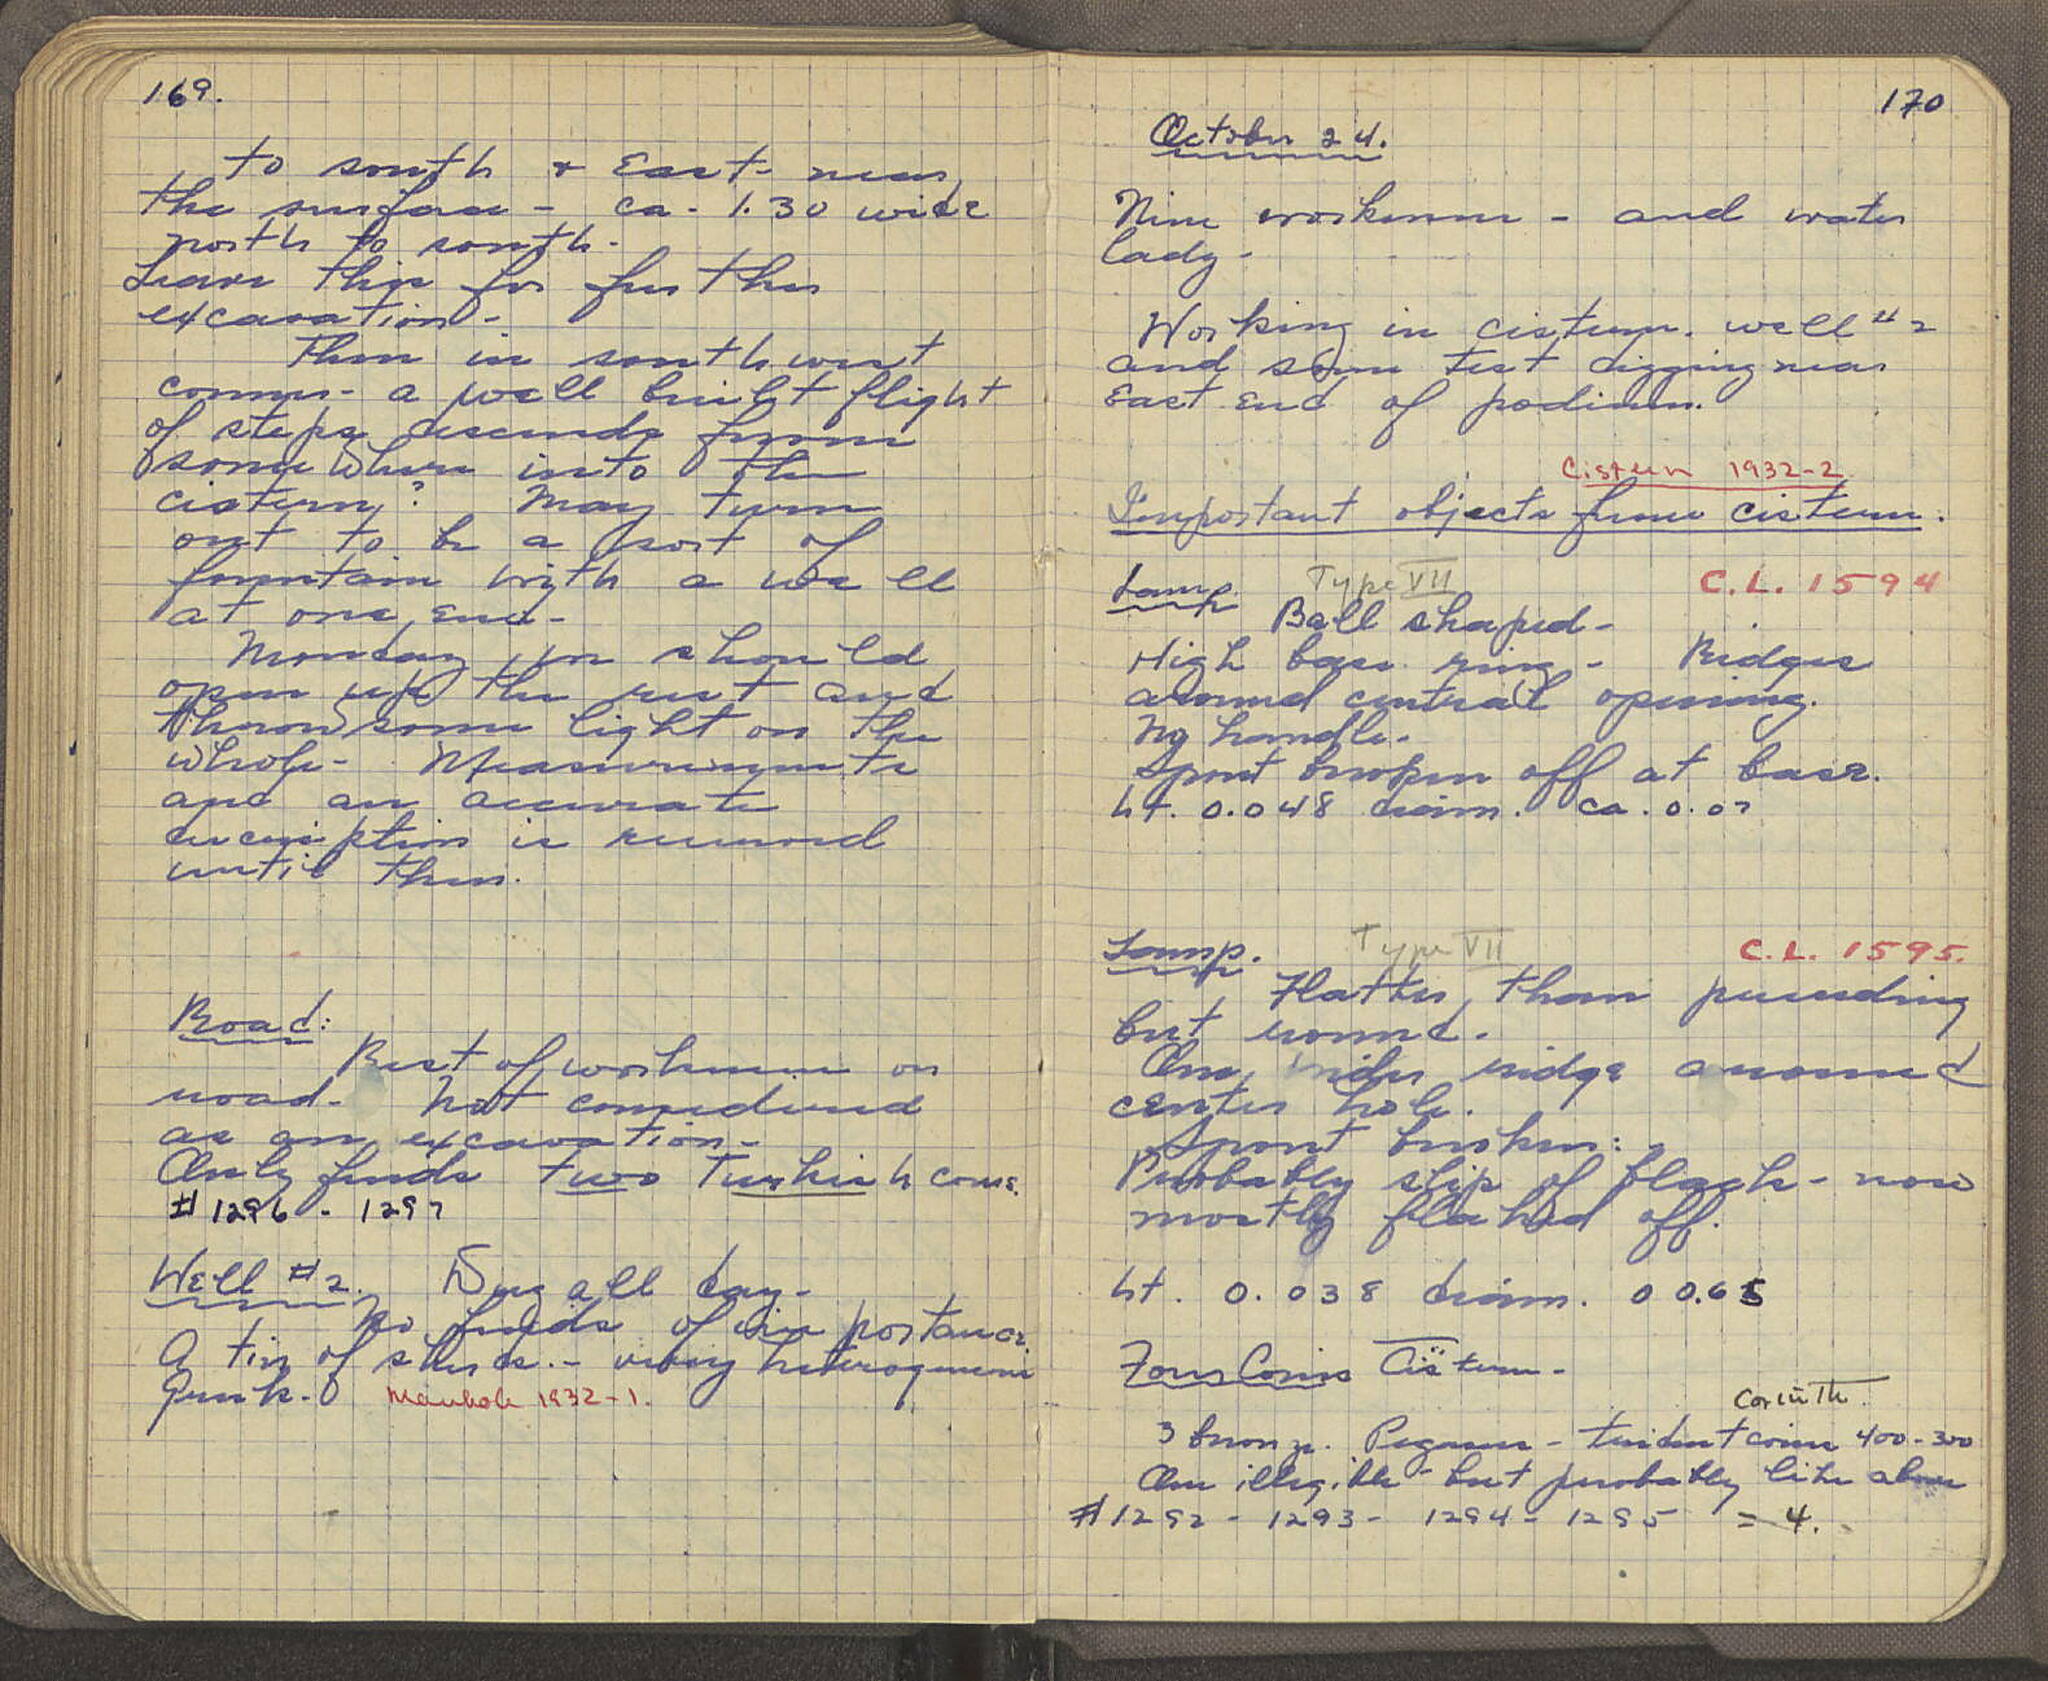 169.
to south & East - near
the surface - ca. 1.30 wide
north to south.
Leave this for further
excavation -
Then in southwest
corner - a well built flight
of steps descends from
somewhere into the
cistern? May turn
out to be a sort of
fountain with a well
at one end -
Monday we should
open up the rest and
throw some light on the
whole - Measurements
and an accurate
description is reserved
until then.
Road:
Rest of workmen on
road - Not considered
as an excavation -
Only finds two Turkish coins.
# 1296 - 1297
Well #2. Dug all day -
No finds of importance.
A tin of sherds. - very heterogeneous
junk - Manhole 1932-1.
170
October 24.
Nine workmen - and water
lady -
Working in cistern. well #2
and some test digging near
East End of podium.
Cistern 1932-2
Important objects from cistern.
Lamp Type VII C.L. 1594
Ball shaped -
High base ring - Ridges
around central opening.
No handle.
Spout broken off at base.
ht. 0.048 diam. ca. 0.07
Lamp. Type VII C.L. 1595.
Flatter than preceeding
but round.
One wider ridge around
center hole.
Spout broken:
Probably slip of black - now
mostly flaked off.
ht. 0.038 diam. 0 0.65
Four Coins Cistern -
Corinth.
3 bronze. Pegasus - trident coins 400-300
One illegible - but probably like above
# 1292 - 1293 - 1294 - 1295 = 4.